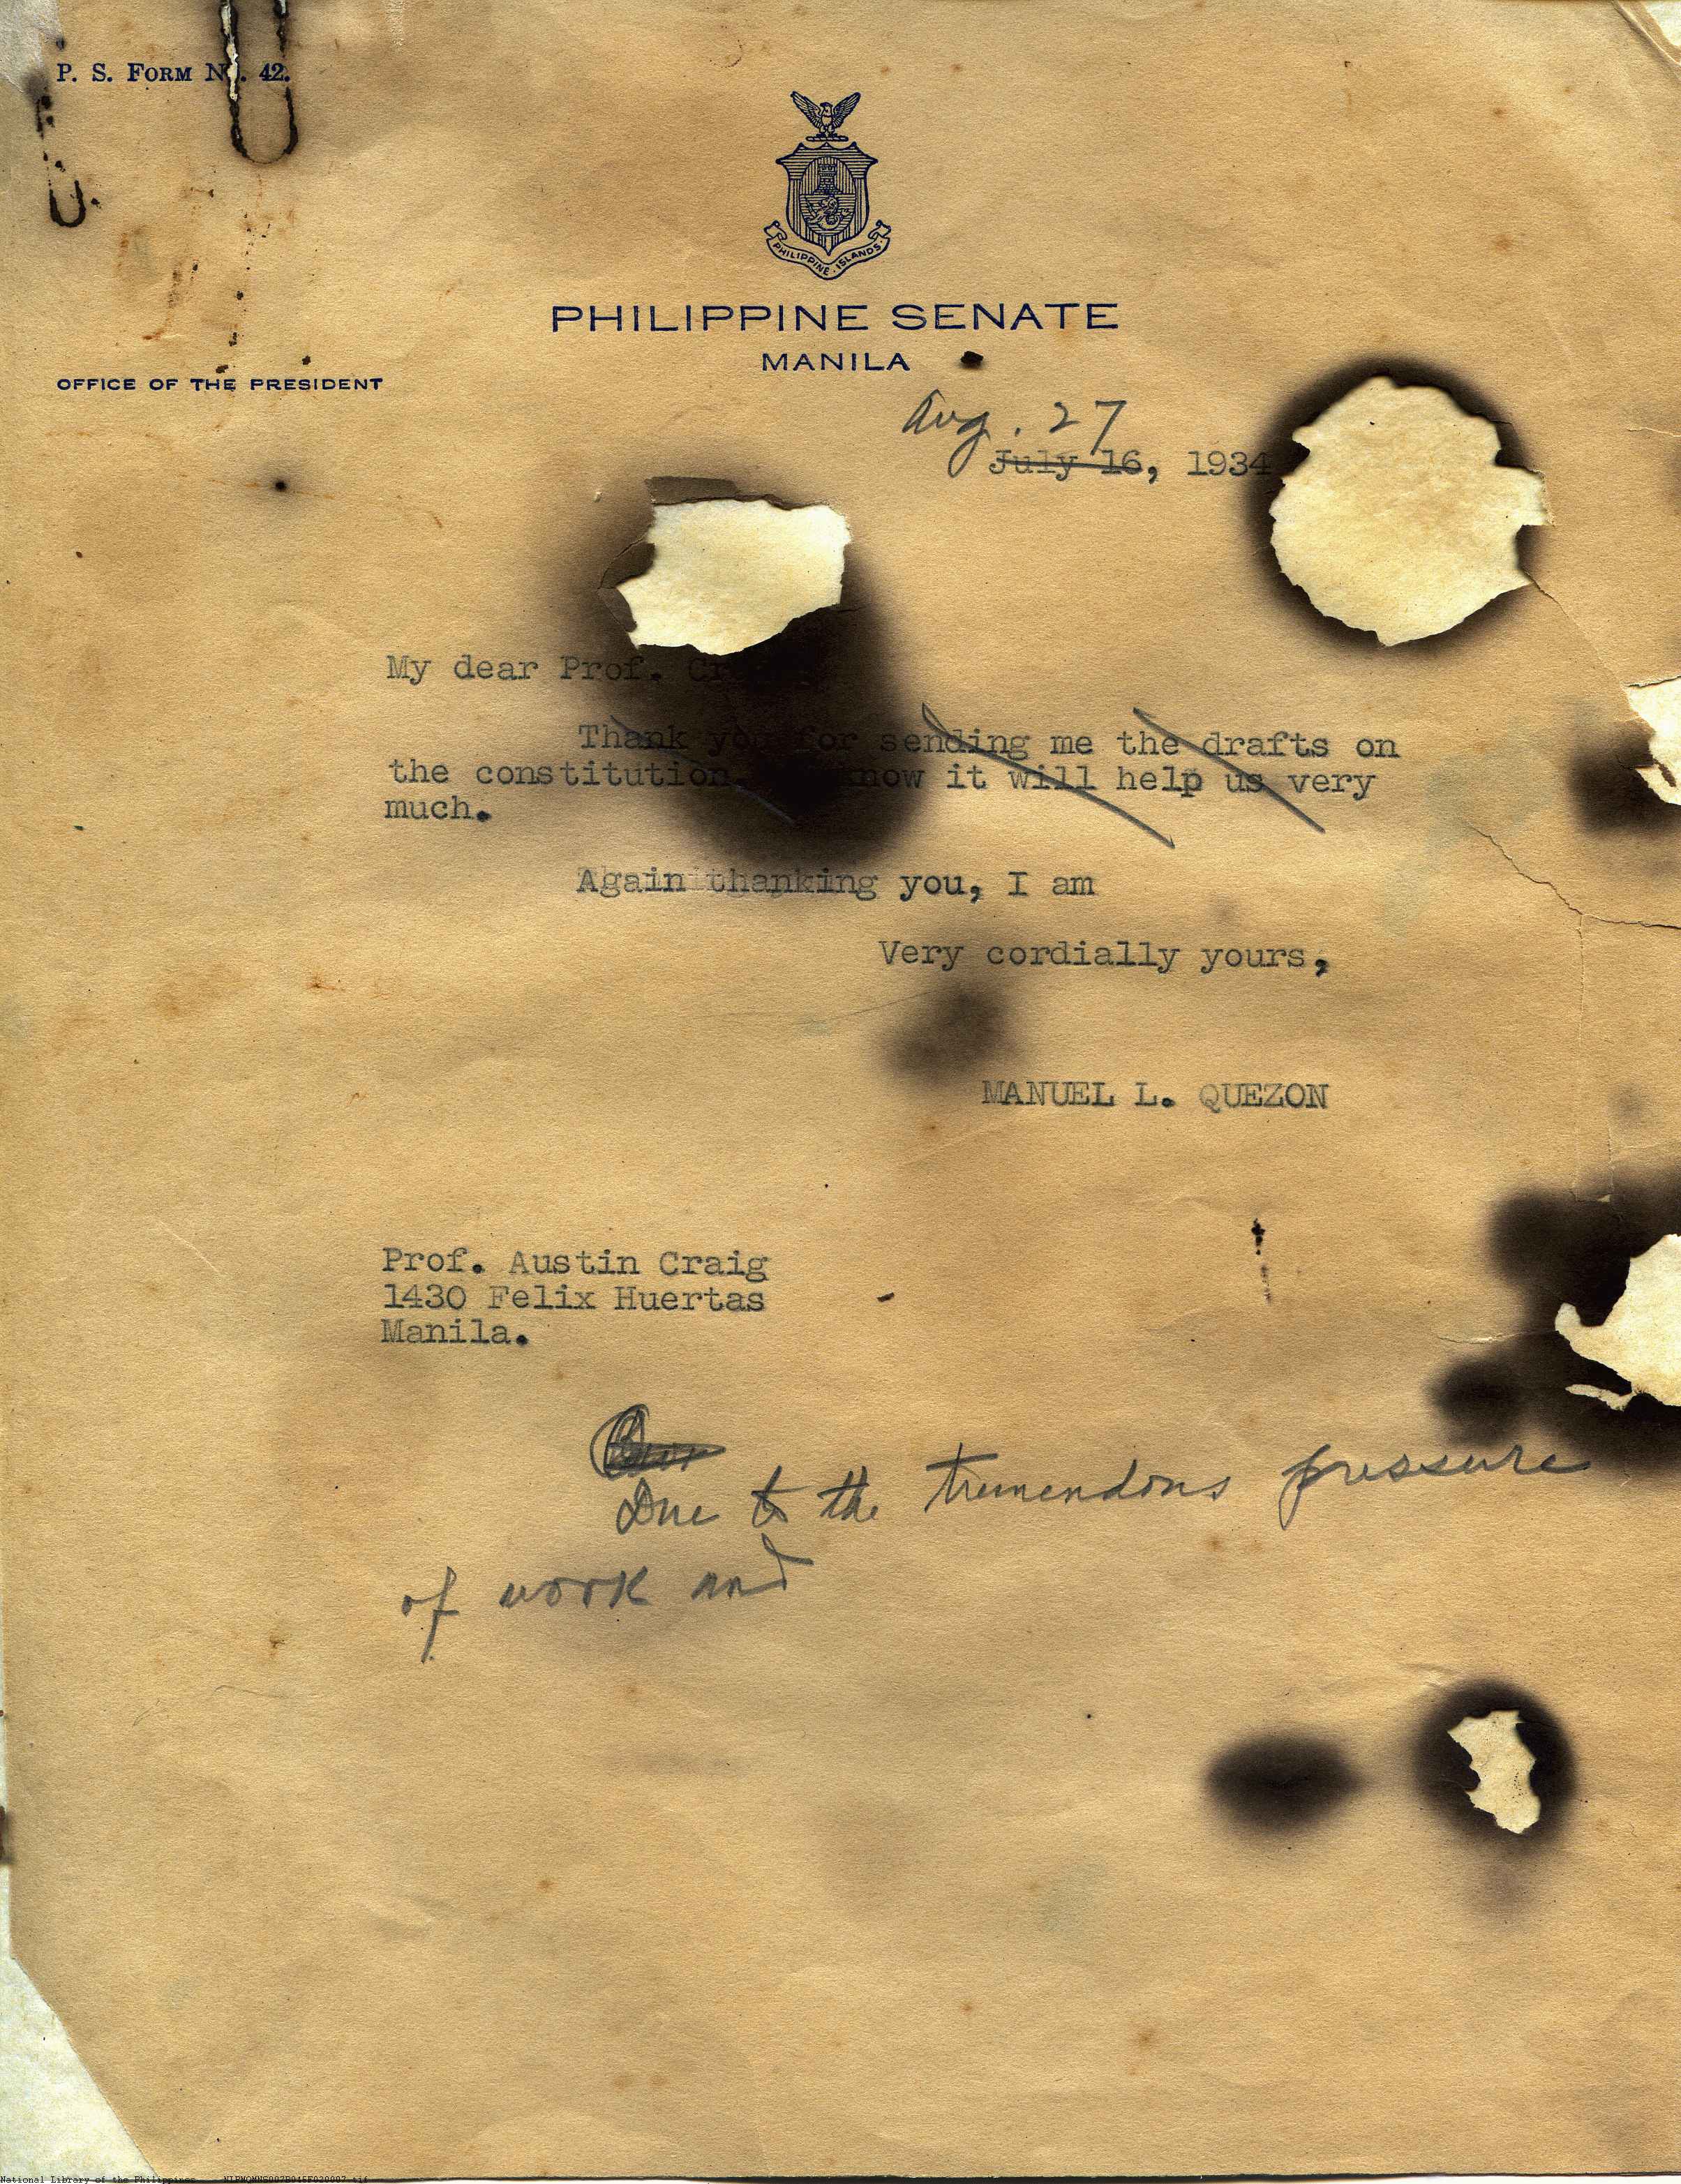 P. S. FORM No. 42.
PHILIPPINE ISLANDS
PHILIPPINE SENATE
MANILA
OFFICE OF THE PRESIDENT
Aug. 27
July 16, 1934
My dear Prof.
Thank you for sending me the drafts on
the constitution. know it will help us very
much.
Again thanking you, I am
Very cordially yours,
MANUEL L. QUEZON
Prof. Austin Craig
1430 Felix Huertas
Manila.
Due to the tremendous pressure
of work and
National Library of the Philippines